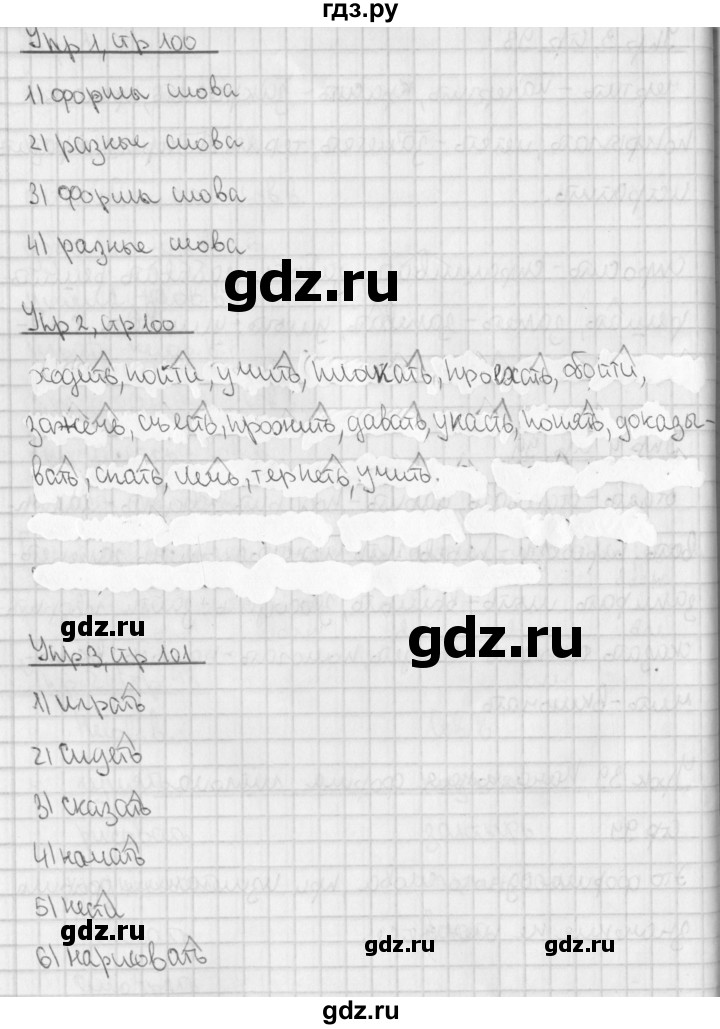 гдз.ру
Упр 1, стр 100
1) формы слова
2) разные слова
3) формы слова
4) разные слова
gdz.ru
Упр 2, стр 100
ходить, пойти, учить, плакать, проехать, обойти,
зажечь, съесть, прожить, давать, украсть, понять, доказы-
вать, спать, лечь, терпеть, учить.
gdz.ru
gdz.ru
Упр 3, стр 101
1) играть
2) сидеть
3) сказать
4) начать
5) нести
gdz.ru
gdz.ru
gdz.ru
6) нарисовать
gdz.ru